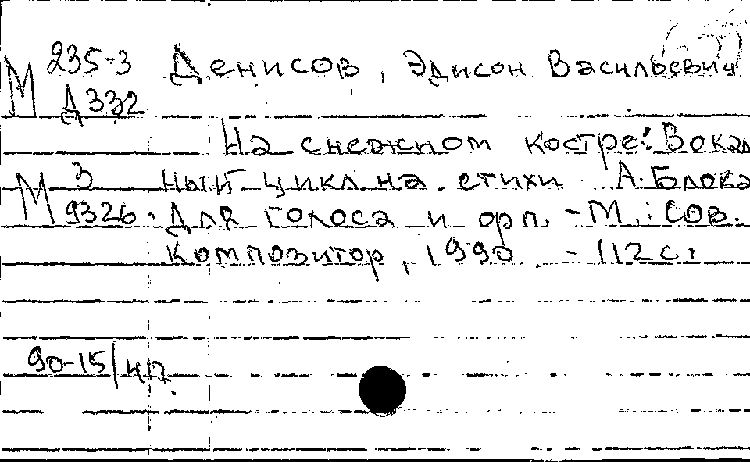 М 235-3 Денисов, Эдисон Васильевич
Д 332
На снежном костре: Вокал
М 3 ный цикл на стихи А. Блока
9326. Для голоса и орп. - М.: Сов.
композитор, 1990. - 112 с.
90-15/нп.